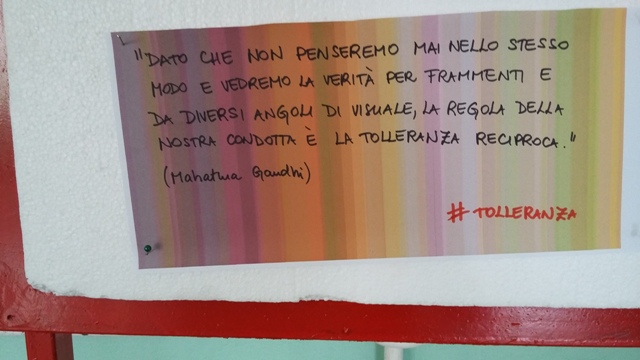 "DATO CHE NON PENSEREMO MAI NELLO STESSO
MODO E VEDREMO LA VERITÀ PER FRAMMENTI E
DA DIVERSI ANGOLI DI VISUALE, LA REGOLA DELLA
NOSTRA CONDOTTA È LA TOLLERANZA RECIPROCA."
(Mahatma Gandhi)
# TOLLERANZA